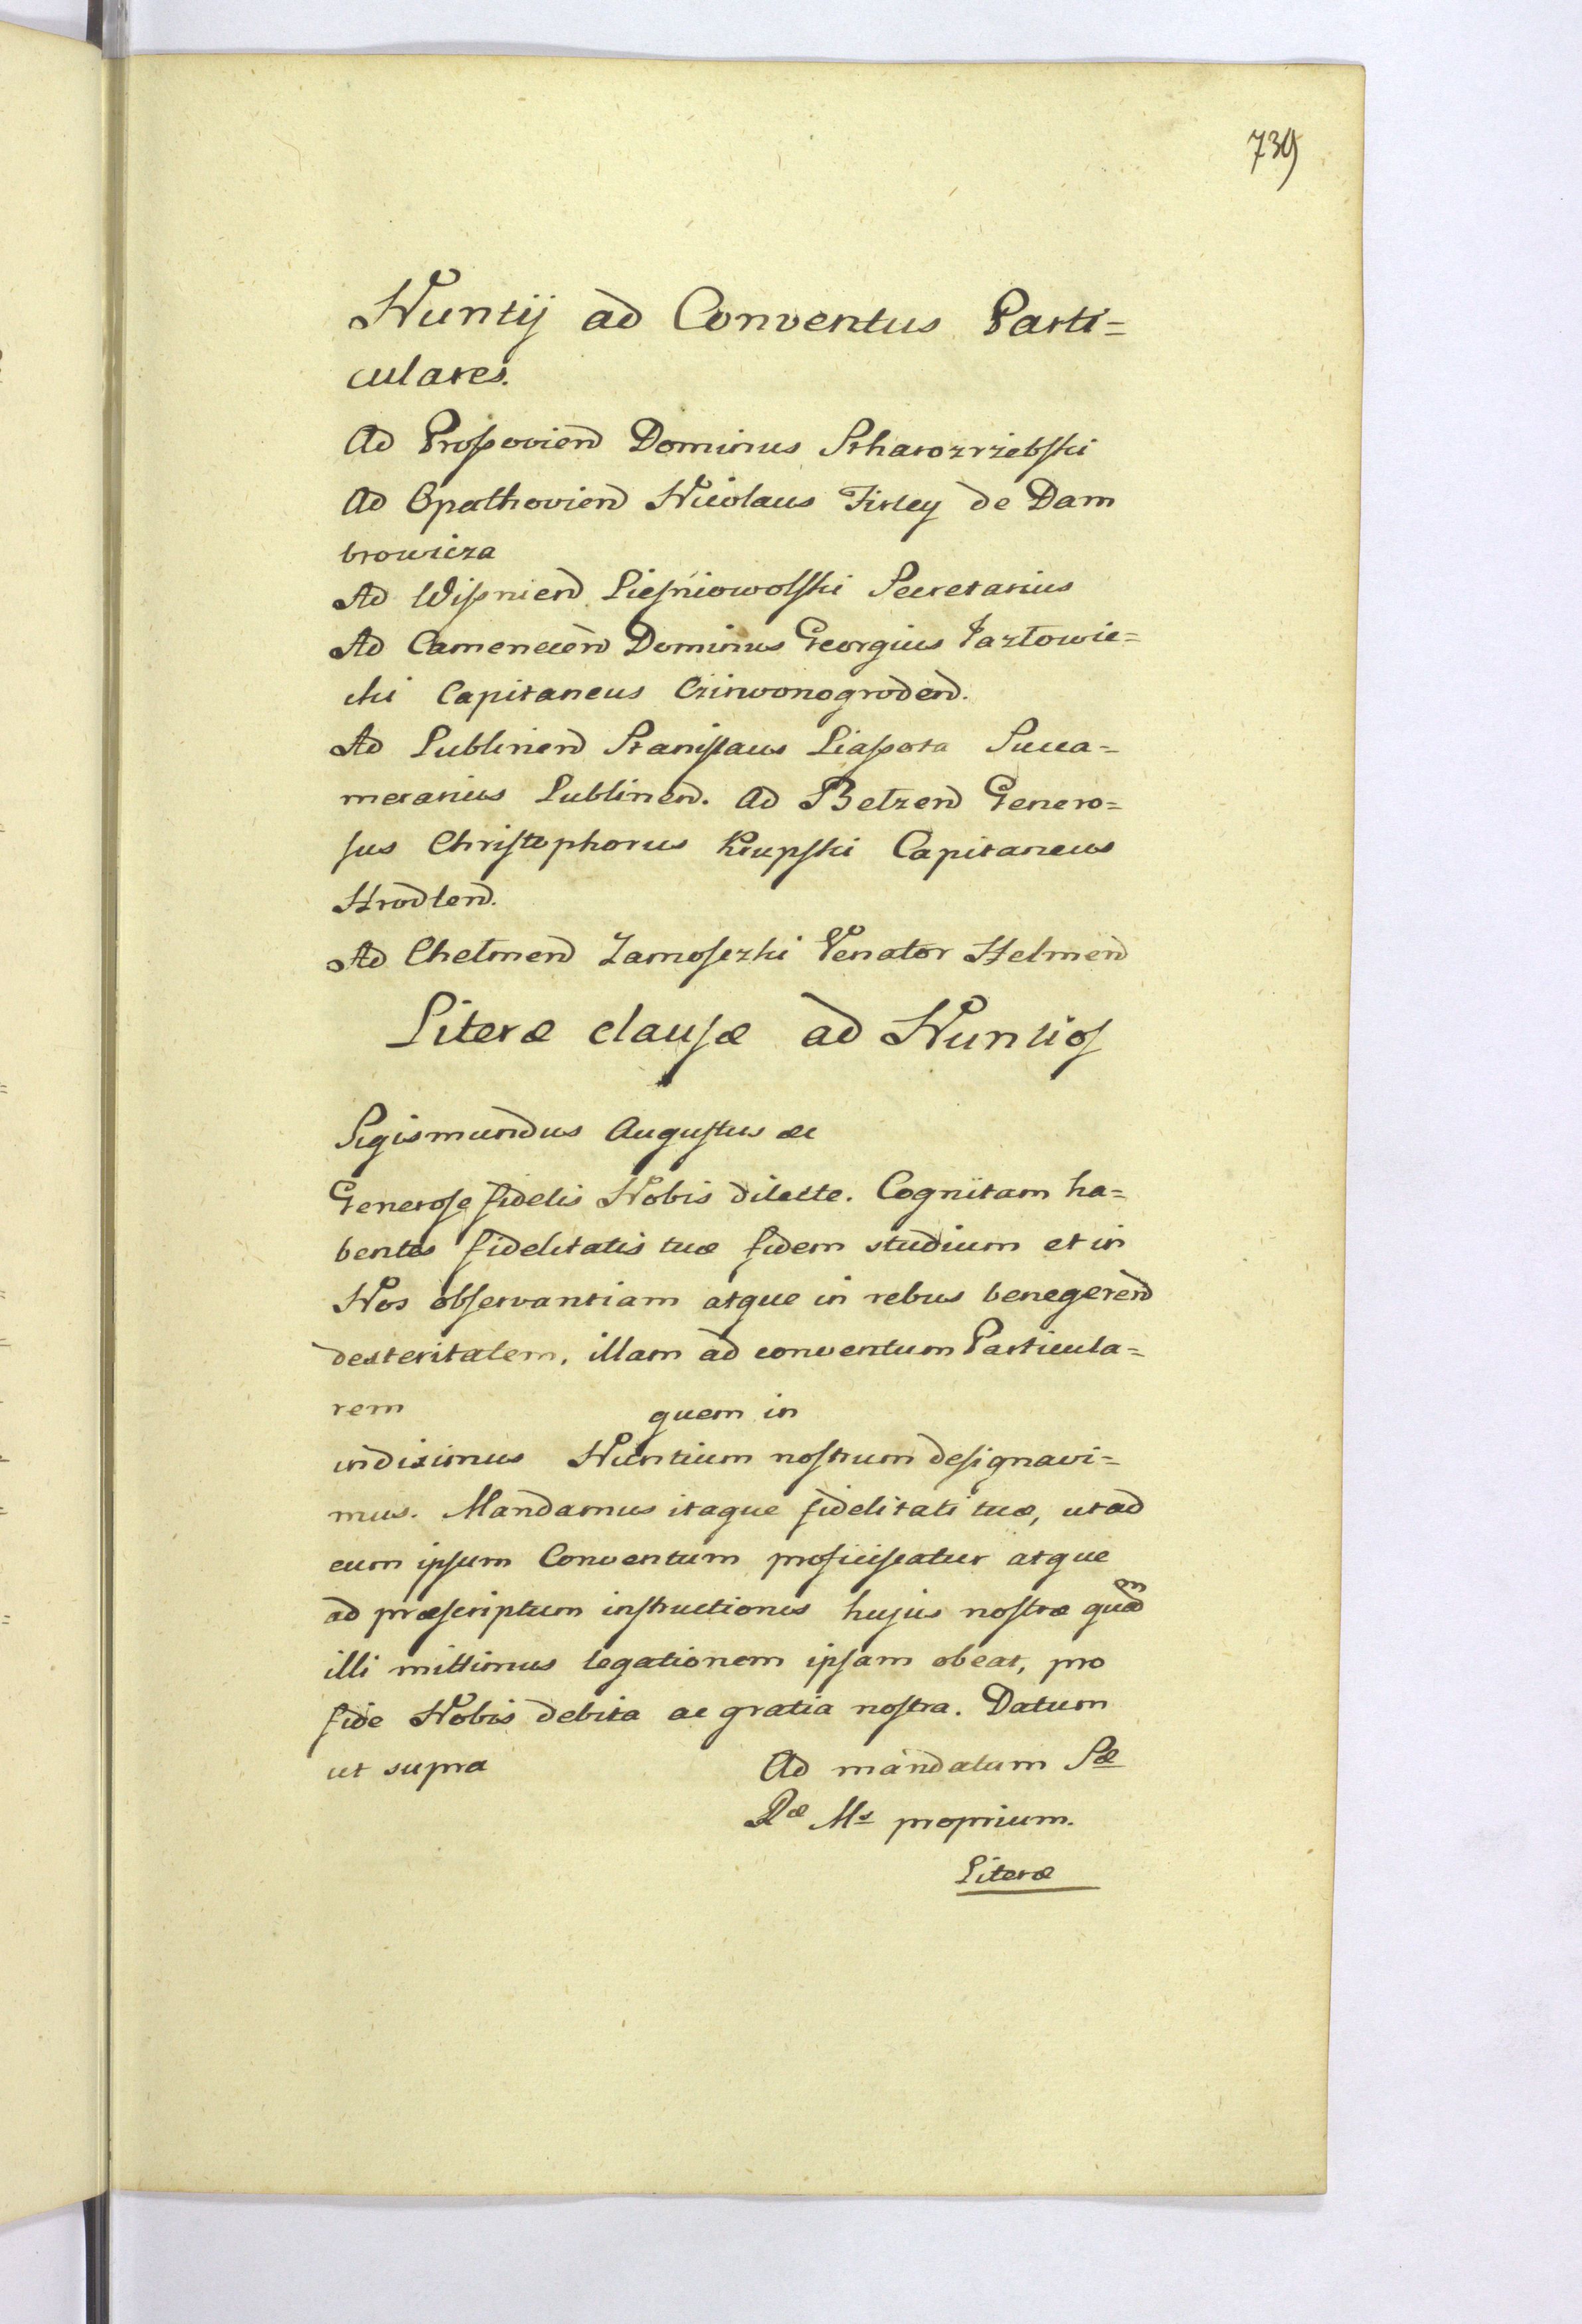 739
Nuntij ad Conventus Parti=
culares.
Ad Proszovien̄ Dominus Stharozrzebski
Ad Opathovien̄ Nicolaus Firley de Dam
browicza
Ad Wisznien̄ Liesniowolski Secretarius
Ad Camenecen̄ Dominus Georgius Jazłowie=
cki Capitaneus Czirwonogroden̄.
Ad Lublinen̄ Stanislaus Liaszota Succa=
merarius Lublinen̄. Ad Betzen̄ Genero=
sus Christophorus Krupski Capitaneus
Hrodlen̄.
Ad Chelmen̄ Zamosczki Venator Helmen̄
Literæ clausæ ad Nuntios
Sigismundus Augustus &c
Generose fidelis Nobis dilecte. Cognitam ha=
bentes fidelitatis tuæ fidem studium et in
Nos observantiam atque in rebus benegeren̄d
dexteritatem, illam ad conventum Particula=
rem quem in
indiximus Nuntium nostrum designavi=
mus. Mandamus itaque fidelitati tuæ, ut ad
eum ipsum Conventum proficiscatur atque
ad præscriptum instructionis hujus nostræ quam
illi mittimus legationem ipsam obeat, pro
fide Nobis debita ac gratia nostra. Datum
ut supra Ad mandatum Sæ
Ræ Ms proprium.
Literæ